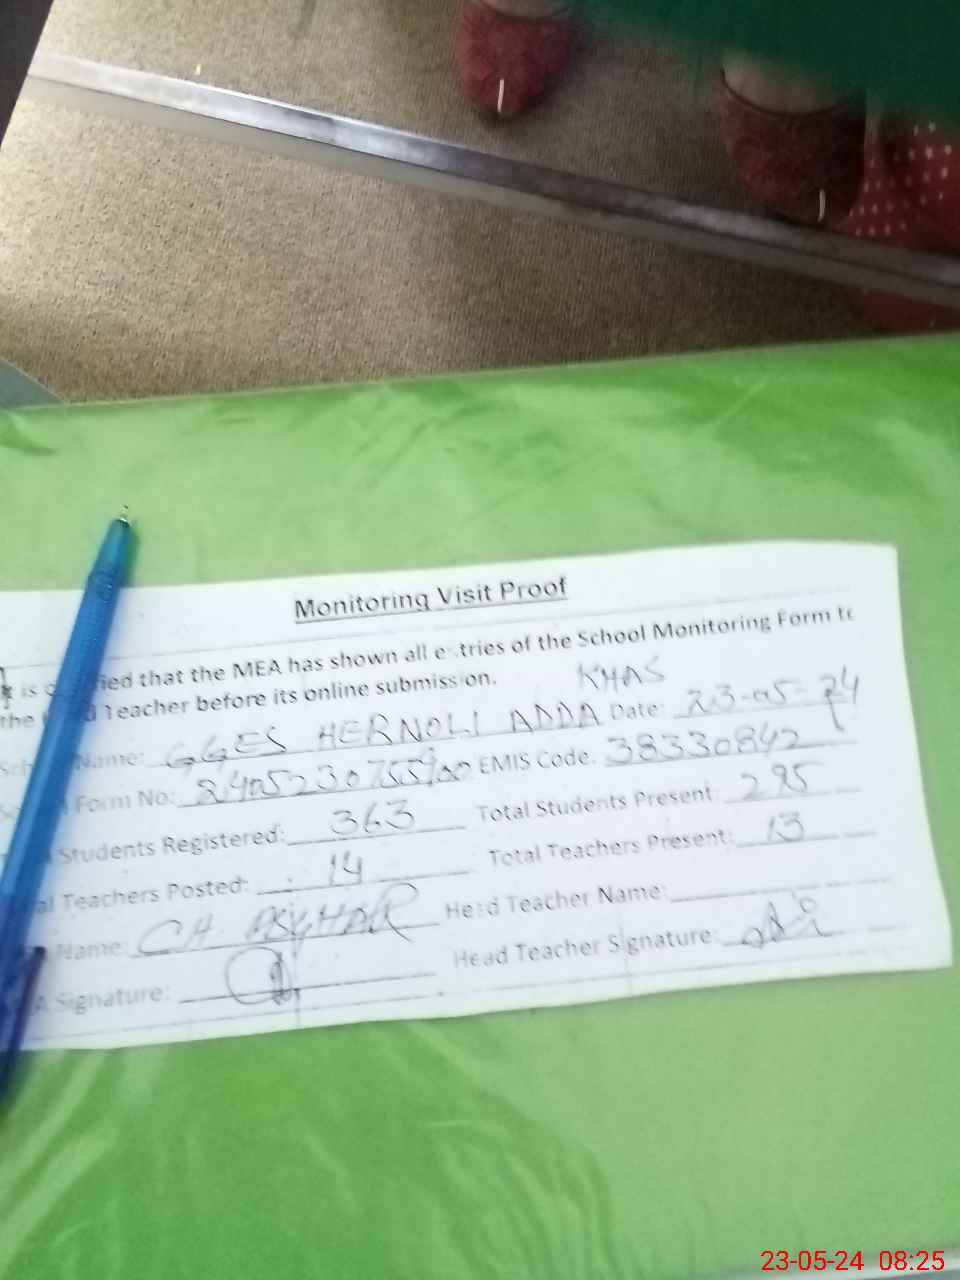 Monitoring Visit Proof
is that the MEA has shown all entries of the School Monitoring Form to
the Teacher before its online submission.
KHAS
Name: GGES HERNOLI ADDA Date: 23-05-24
Form No: EMIS Code. 38330842
Students Registered: 363 Total Students Present: 295
Teachers Posted: 14 Total Teachers Present: 13
Name: CH Head Teacher Name:
A Signature: Head Teacher Signature:
23-05-24 08:25